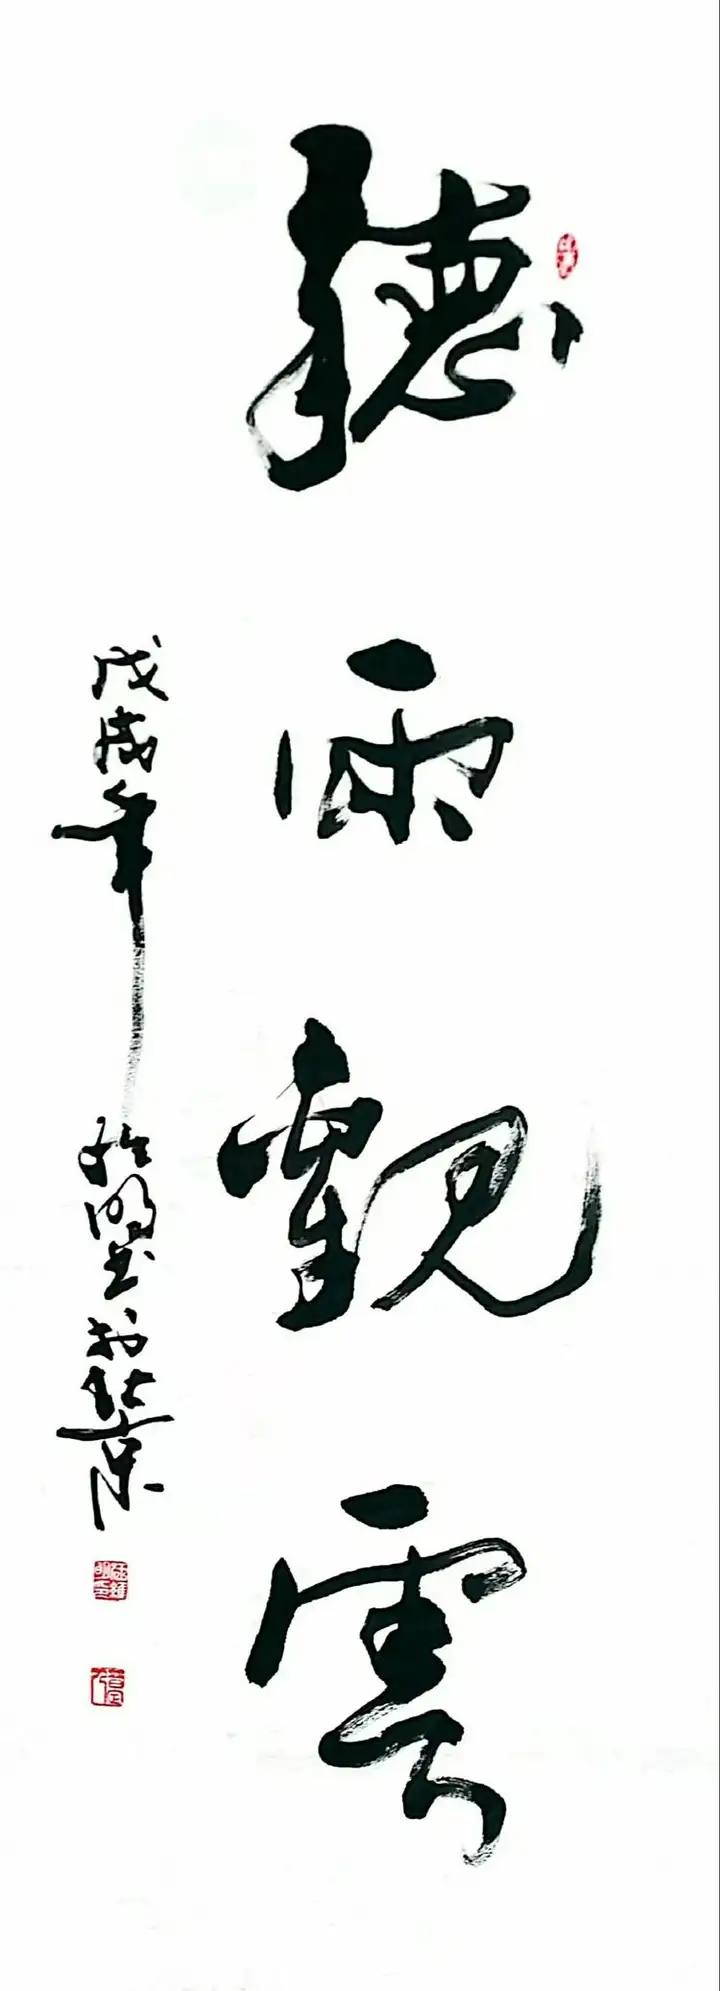 聽雨觀雲
戊戌年 明書於北京